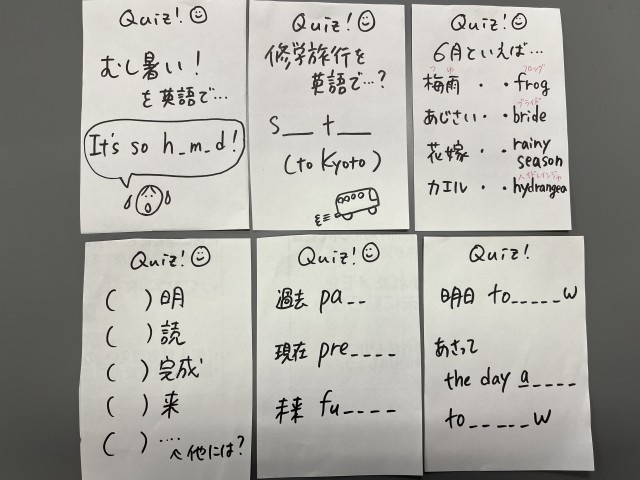 Quiz!
むし暑い!
を英語で…
It's so h_m_d!
Quiz!
修学旅行を
英語で…?
s__ t__
(to Kyoto)
Quiz!
6月といえば…
つゆ フロッグ
梅雨・ ・frog
ブライド
あじさい・ ・bride
花嫁・ ・rainy season
ハイドレインジャ
カエル・ ・hydrangea
Quiz!
( )明
( )読
( )完成
( )来
( )….
他には?
Quiz!
過去 pa__
現在 pre____
未来 fu____
Quiz!
明日 to_____w
あさって
the day a____
to_____w